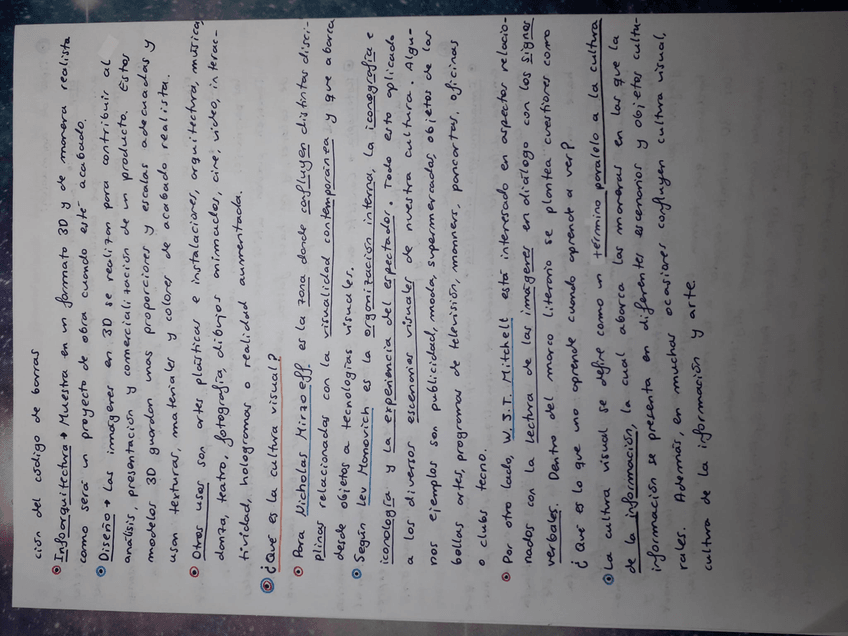 ción del código de barras
Infoarquitectura → Muestra en un formato 3D y de manera realista
como será un proyecto de obra cuando esté acabado.
Diseño → Las imágenes en 3D se realizan para contribuir al
análisis, presentación y comercialización de un producto. Estos
modelos 3D guardan unas proporciones y escalas adecuadas y
usan texturas, materiales y colores de acabado realista.
Otros usos son artes plásticas e instalaciones, arquitectura, música,
danza, teatro, fotografía, dibujos animados, cine, video, interac-
tividad, hologramas o realidad aumentada.
¿Qué es la cultura visual?
Para Nicholas Mirzoeff es la zona donde confluyen distintas disci-
plinas relacionadas con la visualidad contemporánea y que abarca
desde objetos a tecnologías visuales.
Según Lev Monovich es la organización interna, la iconografía e
iconología y la experiencia del espectador. Todo esto aplicado
a los diversos escenarios visuales de nuestra cultura. Algu-
nos ejemplos son publicidad, moda, supermercados, objetos de las
bellas artes, programas de televisión, manners, pancartas, oficinas
o clubs tecno.
Por otro lado, W.J.T. Mitchell está interesado en aspectos relacio-
nados con la lectura de las imágenes en diálogo con los signos
verbales. Dentro del marco literario se plantea cuestiones como
¿Qué es lo que uno aprende cuando aprende a ver?
La cultura visual se define como un término paralelo a la cultura
de la información, la cual abarca las maneras en las que la
información se presenta en diferentes escenarios y objetos cultu-
rales. Además, en muchas ocasiones confluyen cultura visual,
cultura de la información y arte.